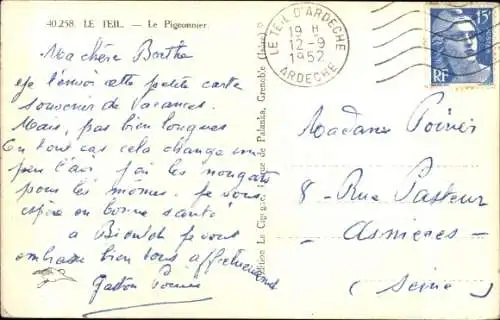 40.258. LE TEIL. — Le Pigeonnier.
Ma chère Berthe
je t'envoi cette petite carte
souvenir de Vacances.
Mais, pas bien longues
En tout cas cela change un
peu l'air j'ai les nougats
pour les momes. Je vous
espère en bonne santé
a Bientot je vous
embrasse bien tous affectueusement
Gaston
Edition La Cigogne, de Palanka, Grenoble (Isère)
LE TEIL D'ARDECHE
19 H
12-9
1952
ARDECHE
15F
RF
Madame Poirier
8 - Rue Pasteur
- Asnieres -
(Seine)